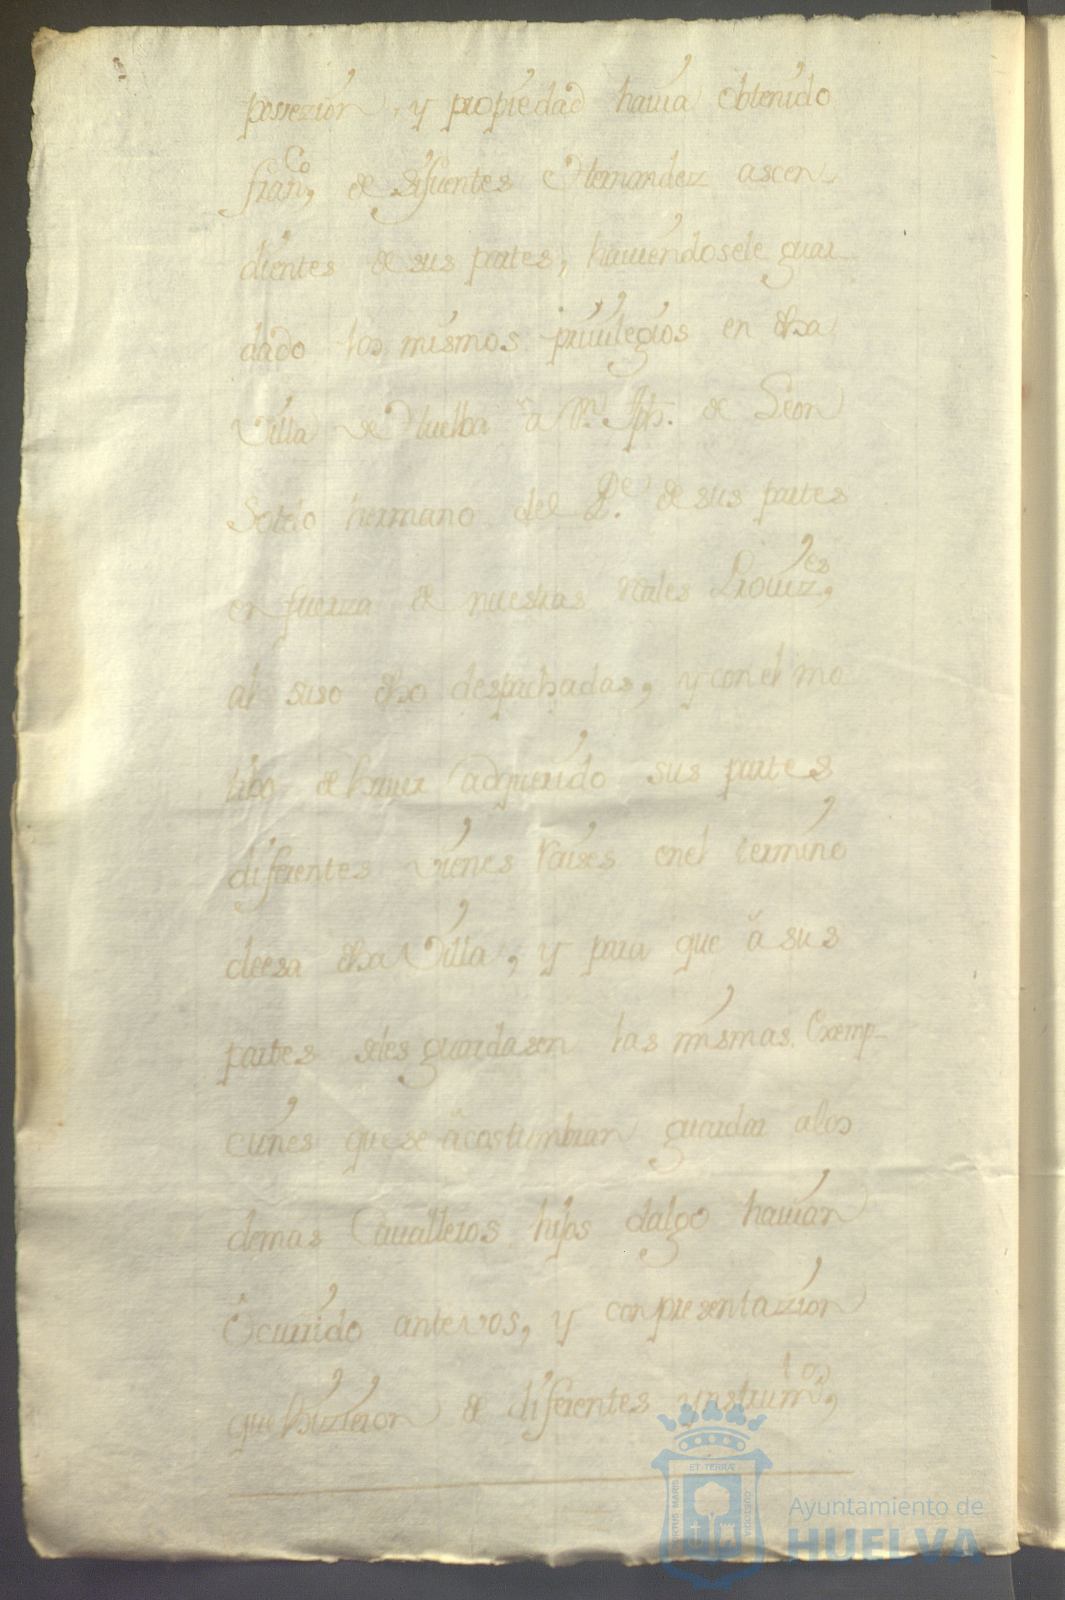 possezion, y propiedad hauia obtenido
fran.co, de Sifuentes Hernandez ascen-
dientes de sus partes, hauiendosele guar-
dado los mismos priuilegios en dha
Villa de Huelba â Dn. Jph. de Leon
Sotelo hermano del Pe. de sus partes
en fuerza de nuestras reales Prouiz.es,
al suso dho despachadas, y con el mo
tibo de hauer adquirido sus partes
diferentes vienes raises enel termino
deesa dha Villa, y para que â sus
partes seles guardasen las mismas Exemp-
ciones que se acostumbran guardar alos
demas Caualleros hijos dalgo hauian
Ocurrido antevos, y conpresentazion
quehizieron de diferentes ynstrum.tos,
PORTUS MARIS
ET TERRÆ
CUSTODIA
Ayuntamiento de
HUELVA